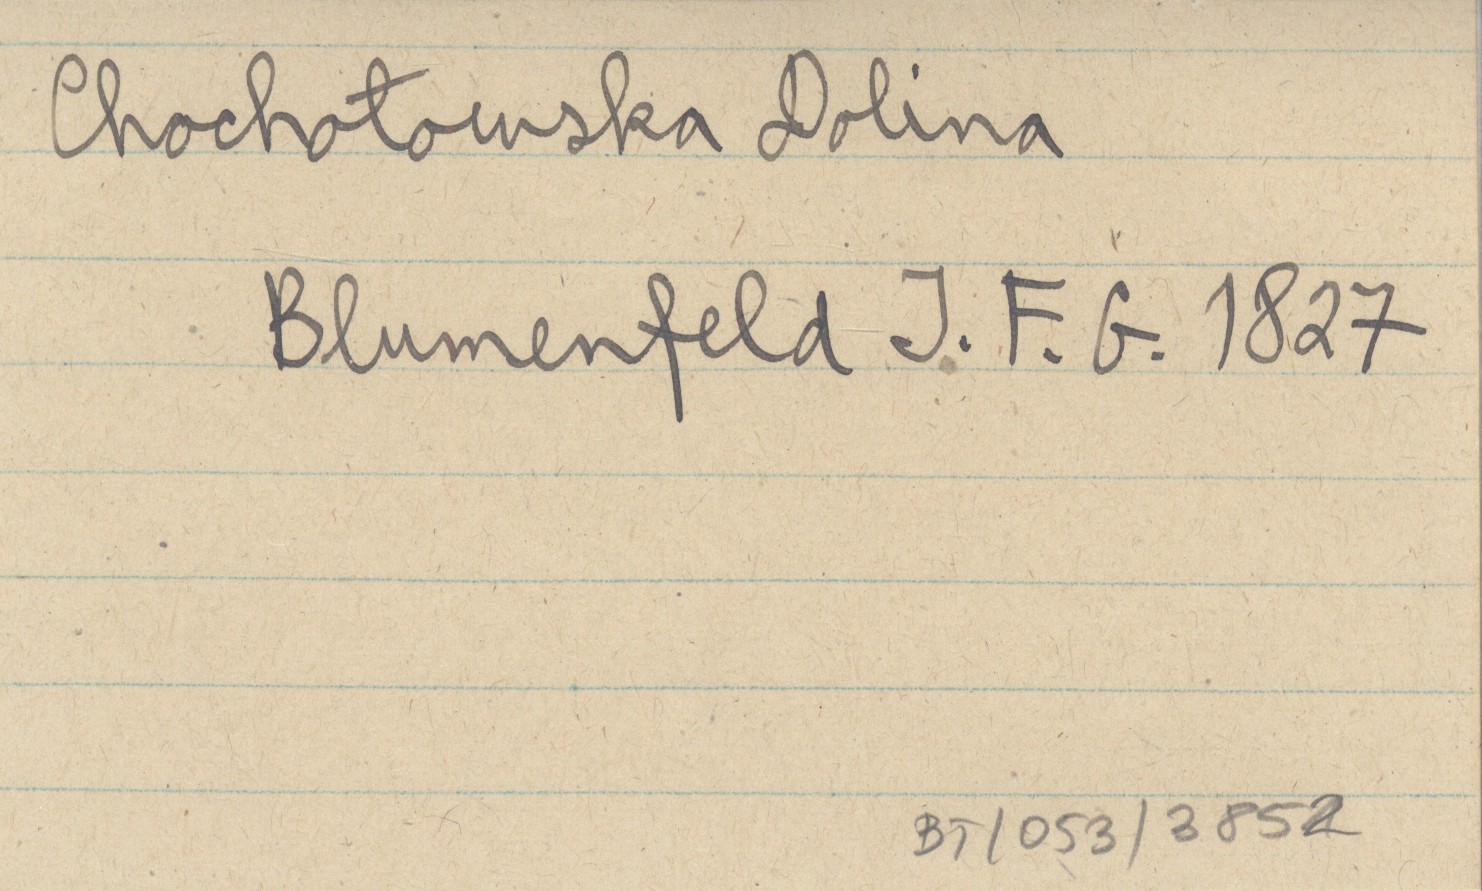 Chochołowska Dolina
Blumenfeld J. F. G. 1827
BT/053/3852